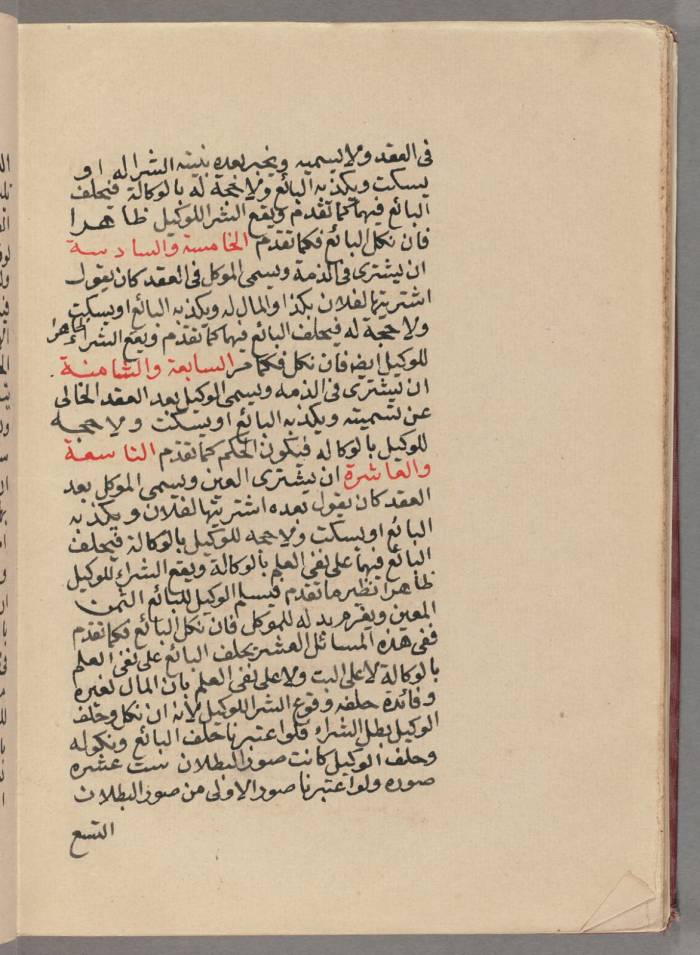 فى العقد ولا يسميه ويخبر بعده بنيته الشرا له او
يسكت ويكذبه البائع ولا حجة له بالوكالة فيحلف
البائع فيهما كما تقدم ويقع الشرا للوكيل ظاهرا
فان نكل البائع فكما تقدم الخامسة والسادسة
ان يشترى فى الذمة ويسمى الموكل فى العقد كان يقول
اشتريتها لفلان بكذا والمال له ويكذبه البائع او يسكت
ولا حجة له فيحلف البائع فيهما كما تقدم ويقع الشراء ظاهرا
للوكيل ايضا فان نكل فكما مر السابعة والثامنة
ان يشترى فى الذمه ويسمى الوكيل بعد العقد الخالى
عن تسميته ويكذبه البائع او يسكت ولا حجه
للوكيل بالوكاله فيكون الحكم كما تقدم التاسعة
والعاشرة ان يشترى العين ويسمى الموكل بعد
العقد كان يقول بعده اشتريتها لفلان ويكذبه
البائع او يسكت ولا حجه للوكيل بالوكالة فيحلف
البائع فيهما على نفى العلم بالوكالة ويقع الشراء للوكيل
ظاهرا نظير ما تقدم فيسلم الوكيل للبائع الثمن
المعين ويغرم بدله للموكل فان نكل البائع فكما تقدم
ففى هذه المسائل العشر يحلف البائع على نفى العلم
بالوكالة لا على البت ولا على نفى العلم بان المال لغيره
وفائدة حلفه وقوع الشرا للوكيل لانه ان نكل وحلف
الوكيل بطل الشراء فلو اعتبرنا حلف البائع ونكوله
وحلف الوكيل كانت صور البطلان ست عشره
صوره ولو اعتبرنا صور الاولى من صور البطلان
التسع